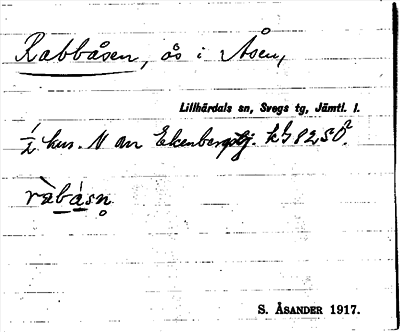 Rabbåsen, ås i Åsen,
Lillhärdals sn, Svegs tg, Jämtl. l.
½ km. N om Ekenberg
ràbåsn̥
S. ÅSANDER 1917.